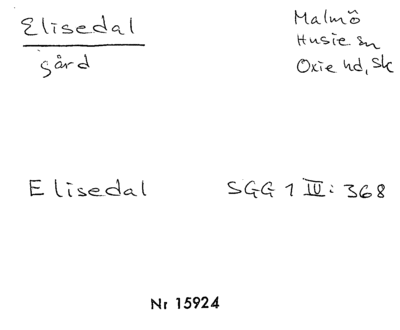 Elisedal
gård
Malmö
Husie sn
Oxie hd, Sk
Elisedal SGG 1 IV: 368
Nr 15924